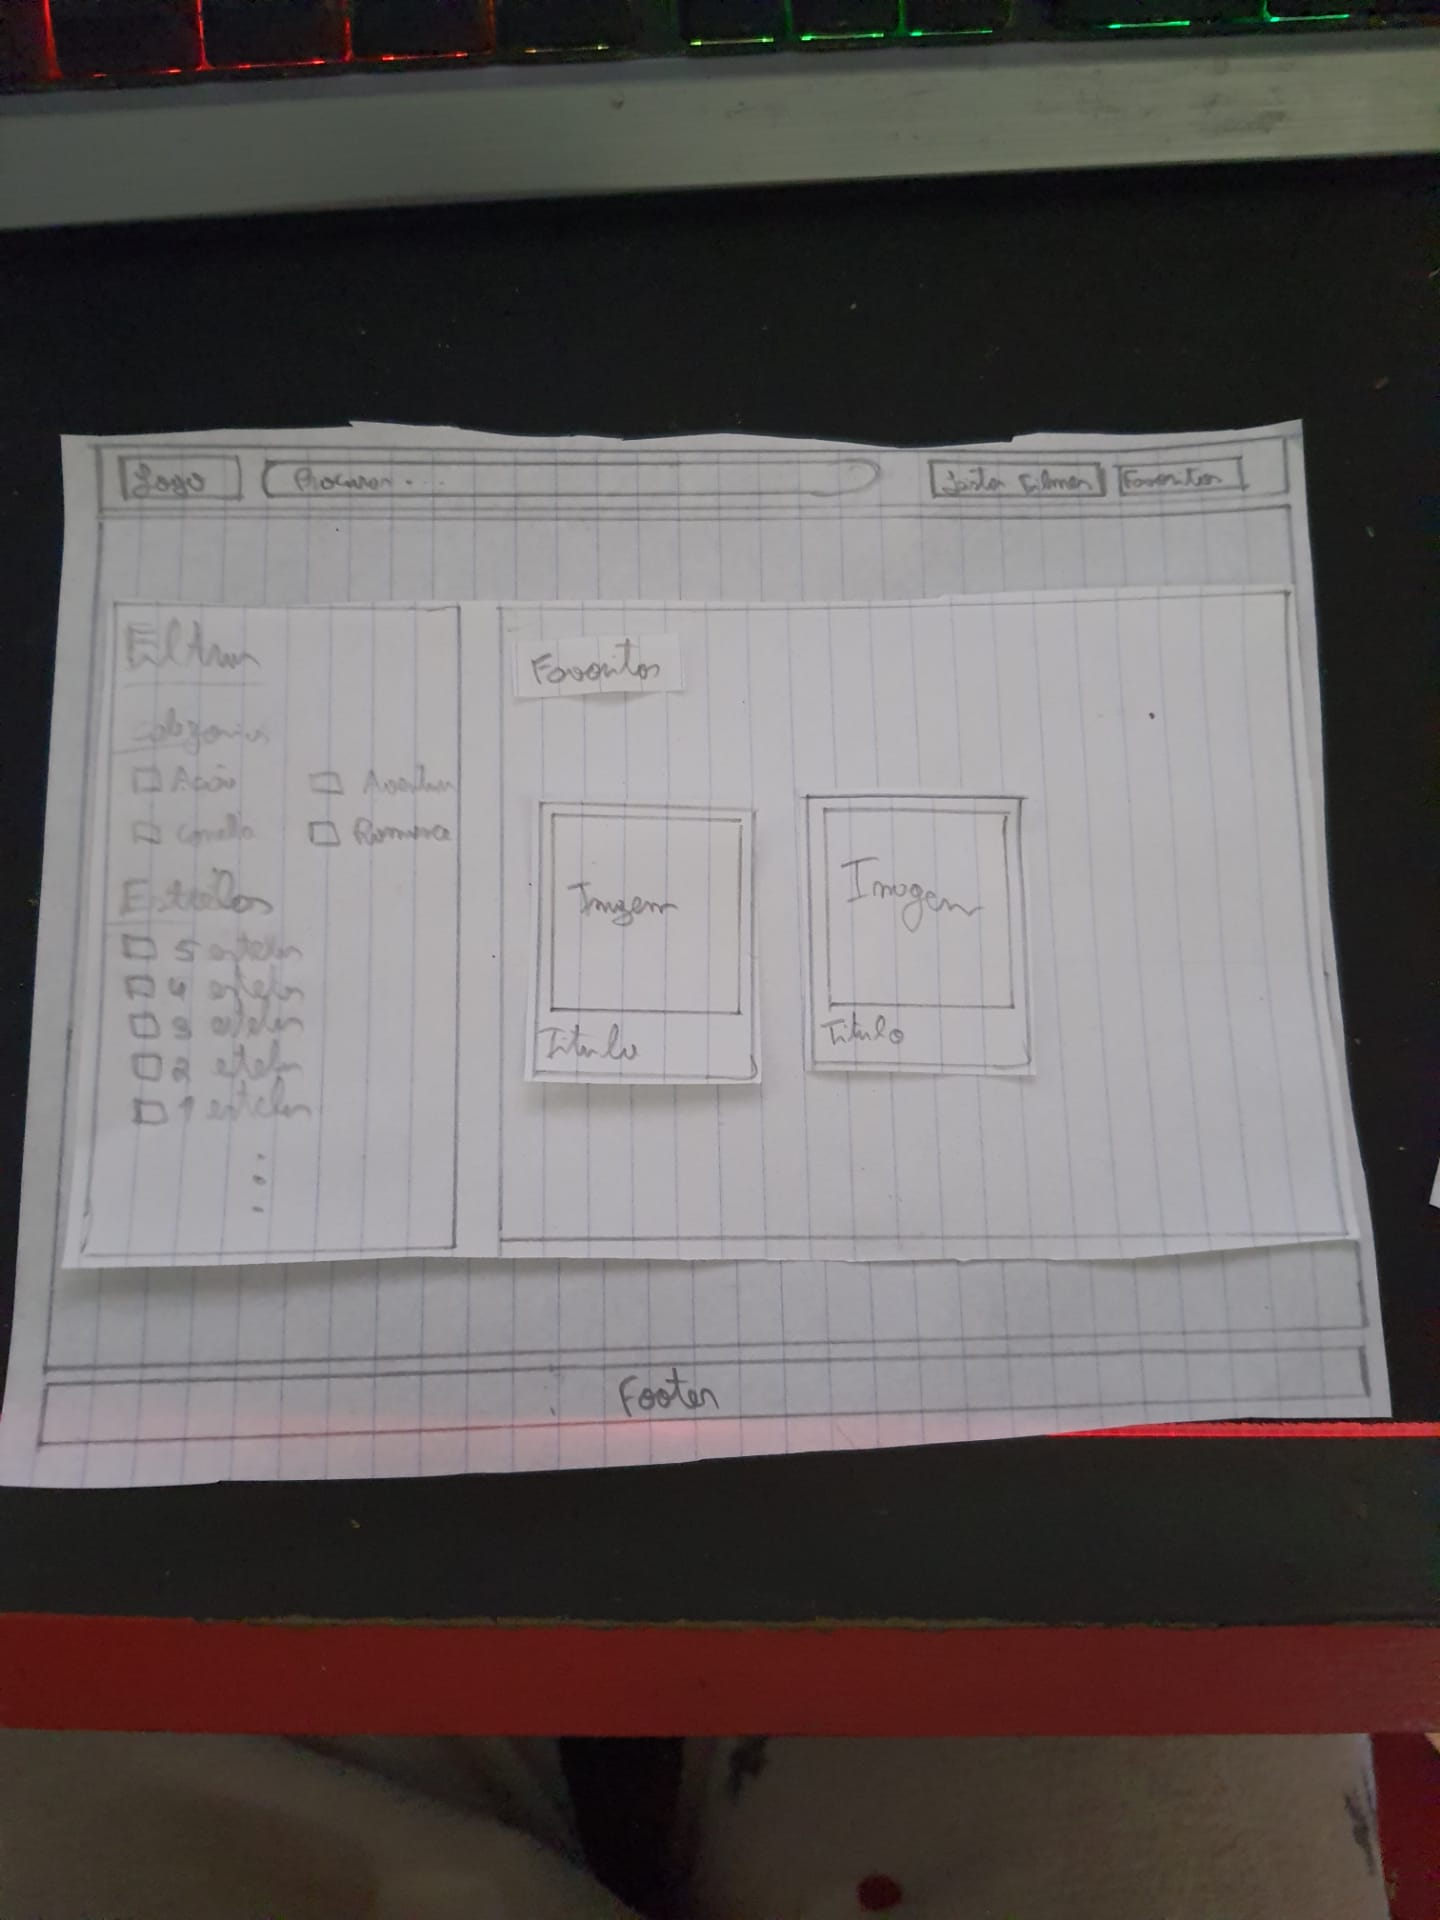 Logo
Procurar . . .
Listar Filmes
Favoritos
Filtros
Categorias
Ação
Aventura
Comédia
Romance
Estrelas
5 estrelas
4 estrelas
3 estrelas
2 estrelas
1 estrelas
...
Favoritos
Imagem
Titulo
Imogem
Titulo
Footer